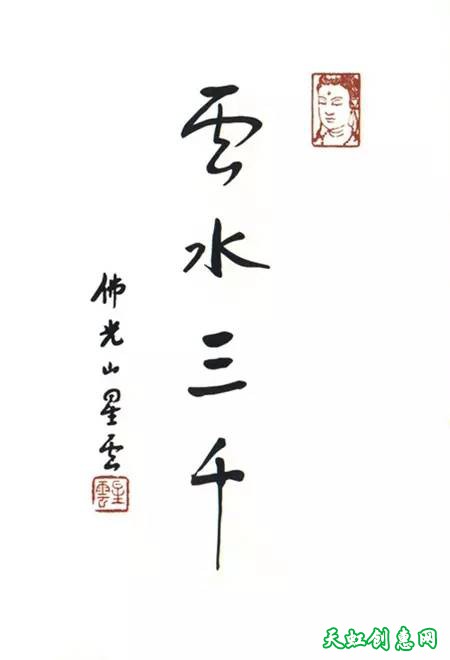 雲水三千
佛光山星雲
星雲
天虹创惠网